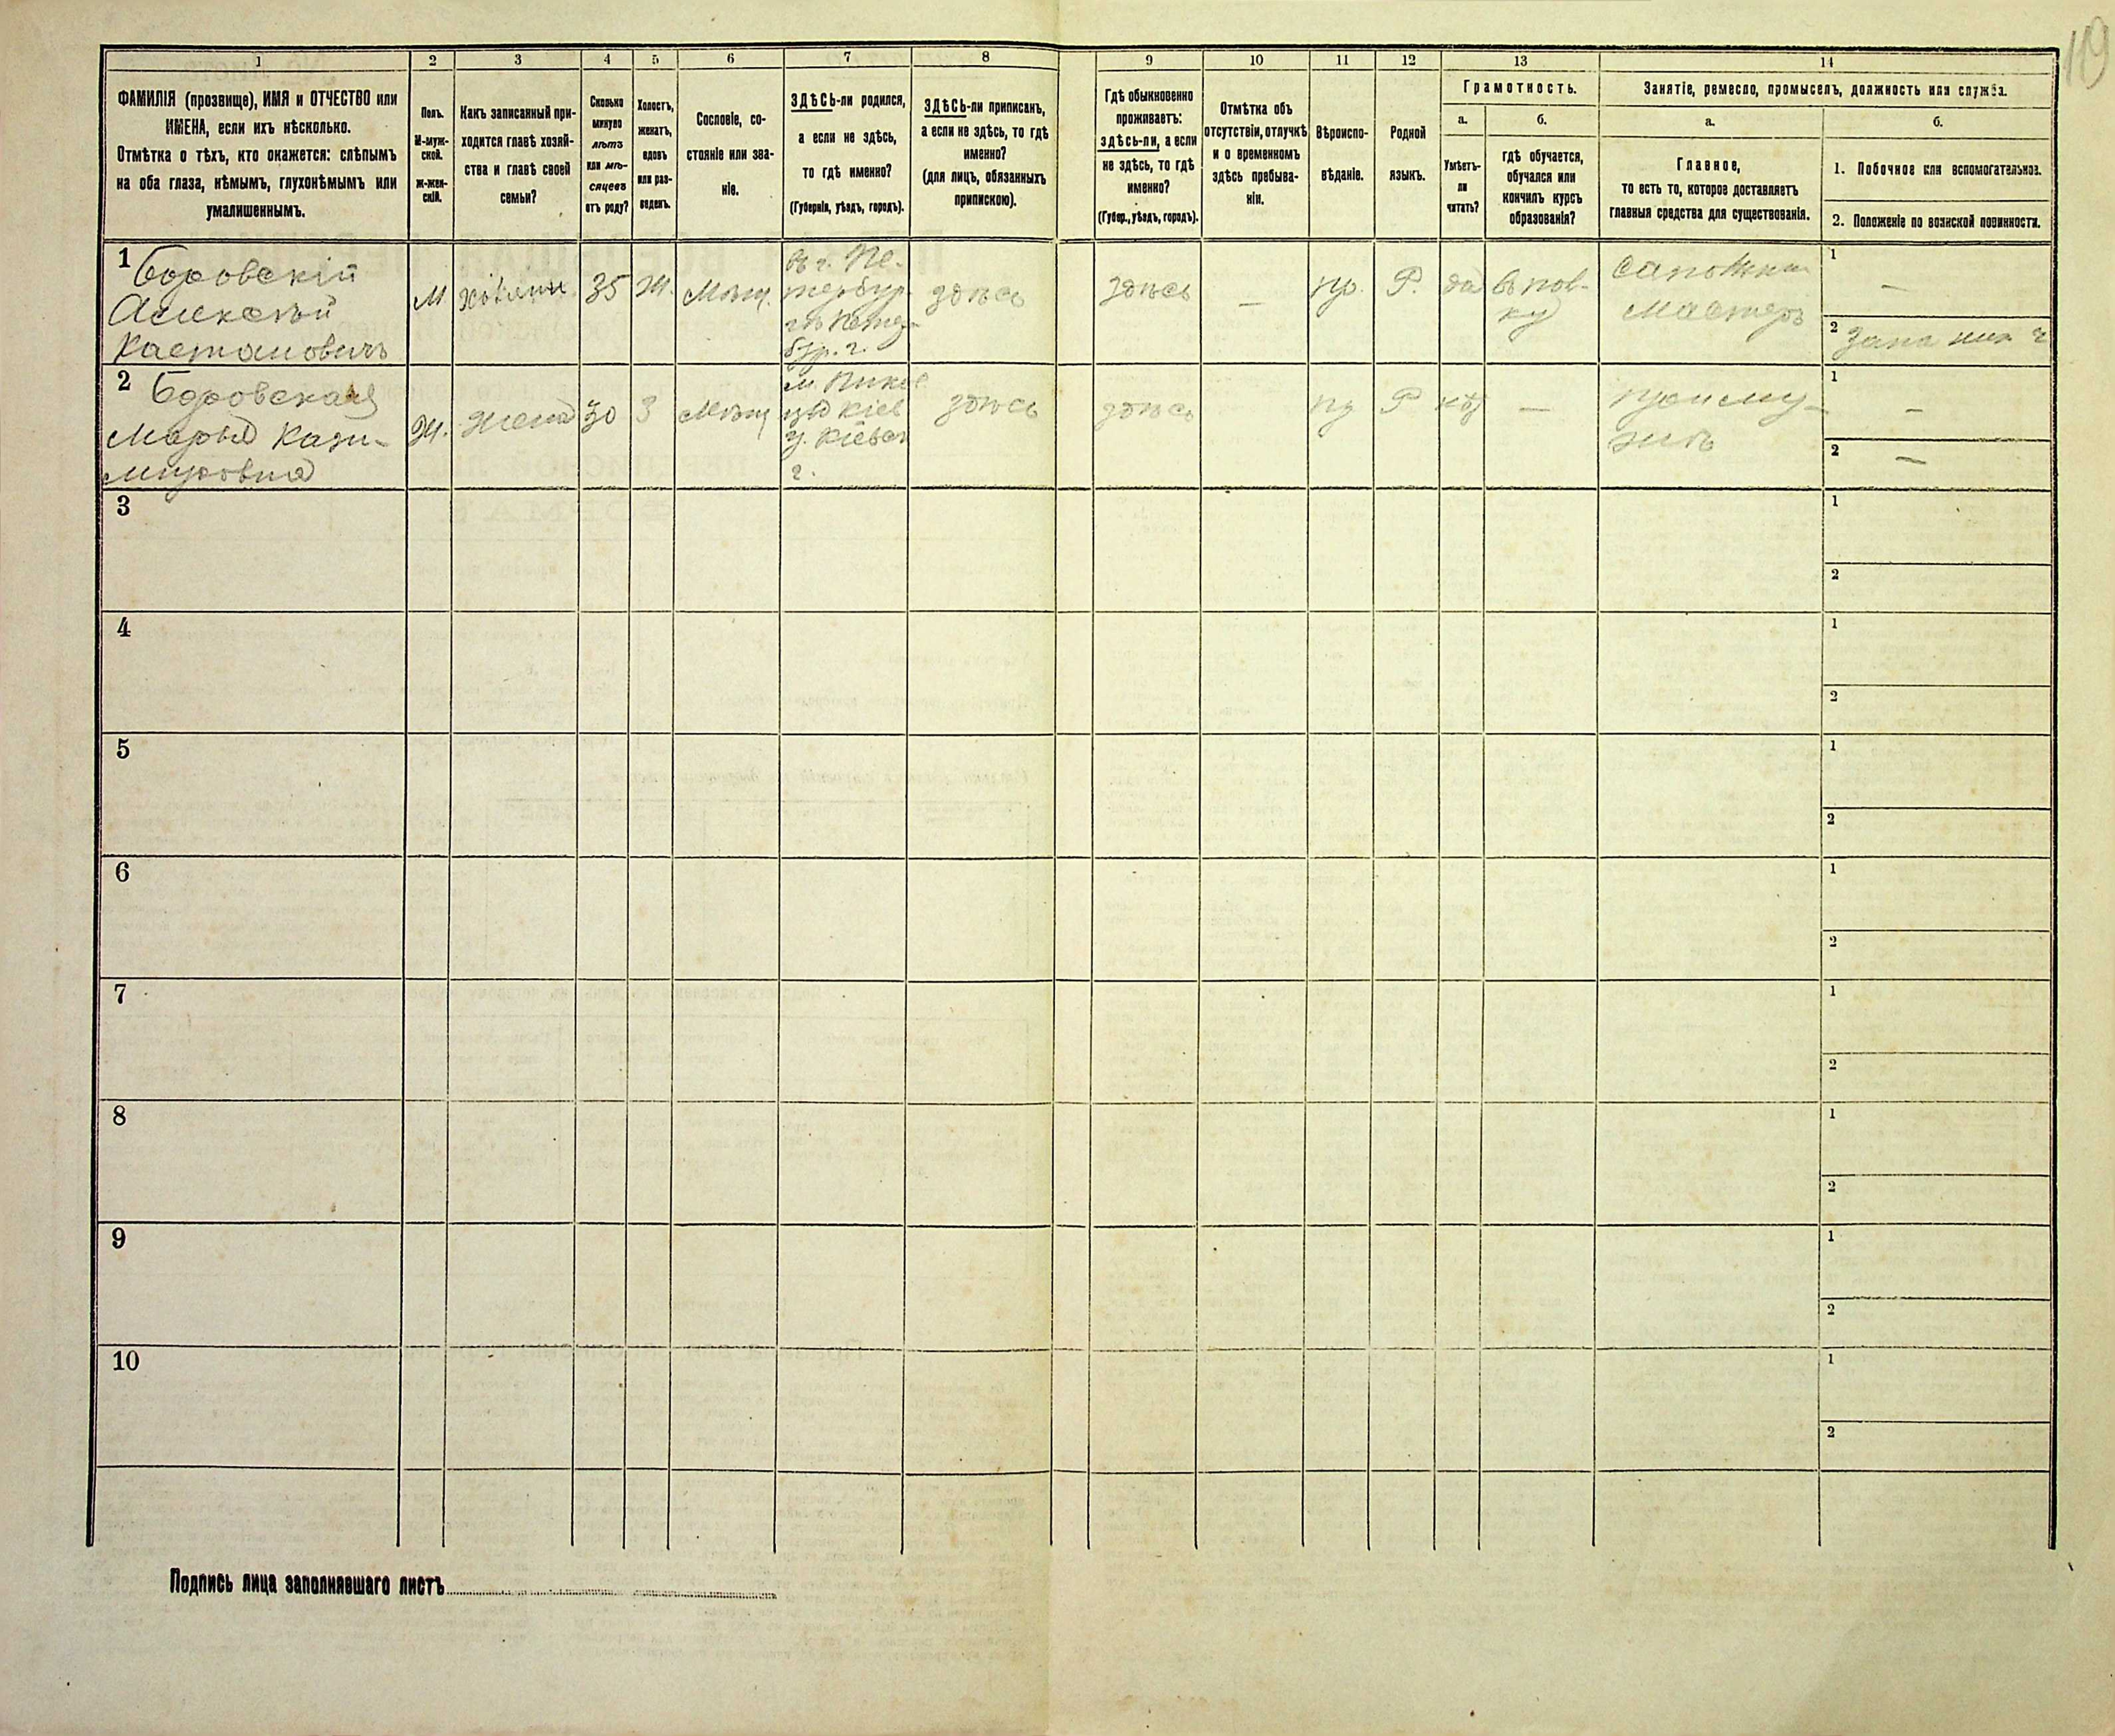 119
1 2 3 4 5 6 7 8 9 10 11 12 13 14
ФАМИЛІЯ (прозвище), ИМЯ и ОТЧЕСТВО или
ИМЕНА, если ихъ нѣсколько.
Отмѣтка о тѣхъ, кто окажется: слѣпымъ
на оба глаза, нѣмымъ, глухонѣмымъ или
умалишеннымъ.
Полъ.
М-муж-
ской.
ж-жен-
скій.
Какъ записанный при-
ходится главѣ хозяй-
ства и главѣ своей
семьи?
Сколько
минуло
лѣтъ
или мѣ-
сяцевъ
отъ роду?
Холостъ,
женатъ,
вдовъ
или раз-
веденъ.
Сословіе, со-
стояніе или зва-
ніе.
ЗДѢСЬ-ли родился,
а если не здѣсь,
то гдѣ именно?
(Губернія, уѣздъ, городъ).
ЗДѢСЬ-ли приписанъ,
а если не здѣсь, то гдѣ
именно?
(для лицъ, обязанныхъ
припискою).
Гдѣ обыкновенно
проживаетъ:
здѣсь-ли, а если
не здѣсь, то гдѣ
именно?
(Губер., уѣздъ, городъ).
Отмѣтка объ
отсутствіи, отлучкѣ
и о временномъ
здѣсь пребыва-
ніи.
Вѣроиспо-
вѣданіе.
Родной
языкъ.
Грамотность.
а.
Умѣетъ-
ли
читать?
б.
гдѣ обучается,
обучался или
кончилъ курсъ
образованія?
Занятіе, ремесло, промыселъ, должность или служба.
а.
Главное,
то есть то, которое доставляетъ
главныя средства для существованія.
б.
1. Побочное или вспомогательное.
2. Положеніе по воинской повинности.
1 Боровскій
Алексѣй
Кастановичъ
М
хозяинъ
35
Ж.
Мѣщ.
въ г. Пе-
тербур-
гѣ Петер-
бур. г.
здѣсь
здѣсь
—
пр.
Р.
да
въ пов-
ку
Сапожни
Мастеръ
1
—
2
Запа ниж ч
2 Боровская
Марья Кази-
мировна
Ж.
Жена
30
З
Мѣщ
здѣсь
здѣсь
пр
Р
нѣ
—
при му-
жѣ
1
—
2
—
3
1
2
4
1
2
5
1
2
6
1
2
7
1
2
8
1
2
9
1
2
10
1
2
Подпись лица заполнявшаго листъ